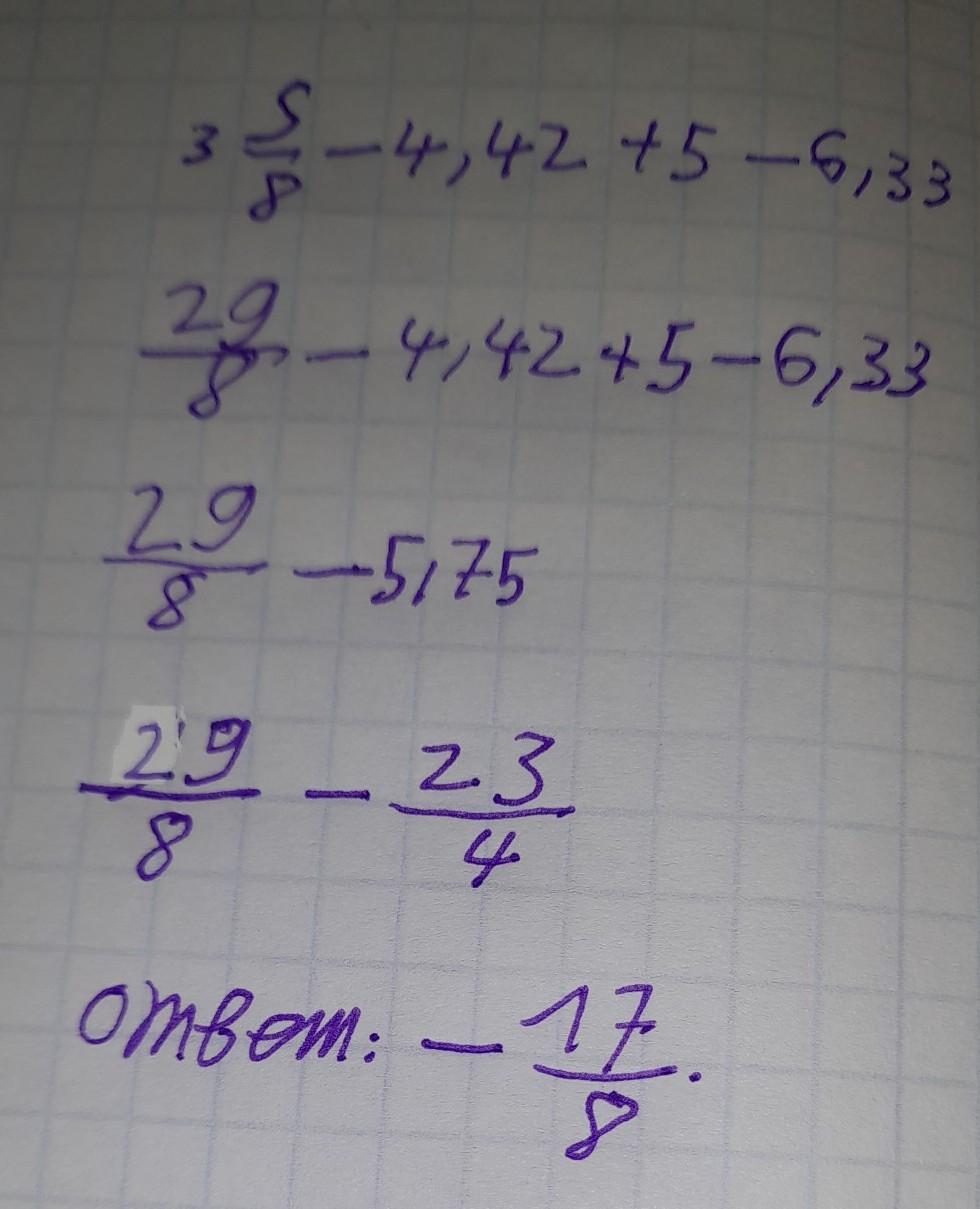 3 5/8 - 4,42 + 5 - 6,33
29/8 - 4,42 + 5 - 6,33
29/8 - 5,75
29/8 - 23/4
ответ: - 17/8.